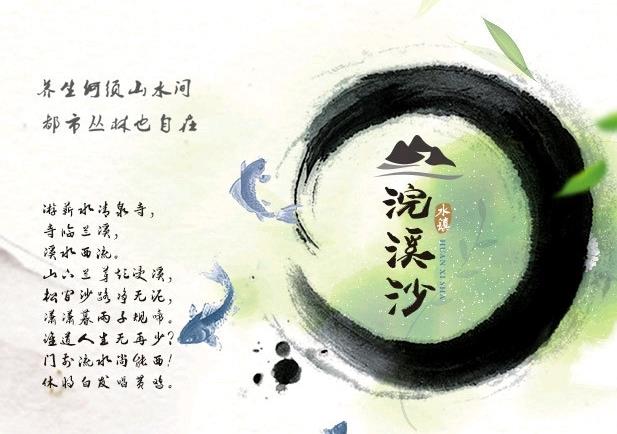 养生何须山水间
都市丛林也自在
游蕲水清泉寺，
寺临兰溪，
溪水西流。
山下兰芽短浸溪，
松间沙路净无泥，
潇潇暮雨子规啼。
谁道人生无再少？
门前流水尚能西！
休将白发唱黄鸡。
浣溪沙
水镇
HUAN XI SHA